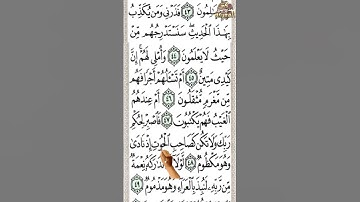 سَٰلِمُونَ ٤٣ فَذَرْنِي وَمَن يُكَذِّبُ
بِهَٰذَا ٱلْحَدِيثِ سَنَسْتَدْرِجُهُم مِّنْ
حَيْثُ لَا يَعْلَمُونَ ٤٤ وَأُمْلِي لَهُمْ إِنَّ
كَيْدِي مَتِينٌ ٤٥ أَمْ تَسْـَٔلُهُمْ أَجْرًا فَهُم
مِّن مَّغْرَمٍ مُّثْقَلُونَ ٤٦ أَمْ عِندَهُمُ
ٱلْغَيْبُ فَهُمْ يَكْتُبُونَ ٤٧ فَٱصْبِرْ لِحُكْمِ
رَبِّكَ وَلَا تَكُن كَصَاحِبِ ٱلْحُوتِ إِذْ نَادَىٰ
وَهُوَ مَكْظُومٌ ٤٨ لَّوْلَآ تَدَٰرَكَهُۥ نِعْمَةٌ
مِّن رَّبِّهِۦ لَنُبِذَ بِٱلْعَرَآءِ وَهُوَ مَذْمُومٌ ٤٩